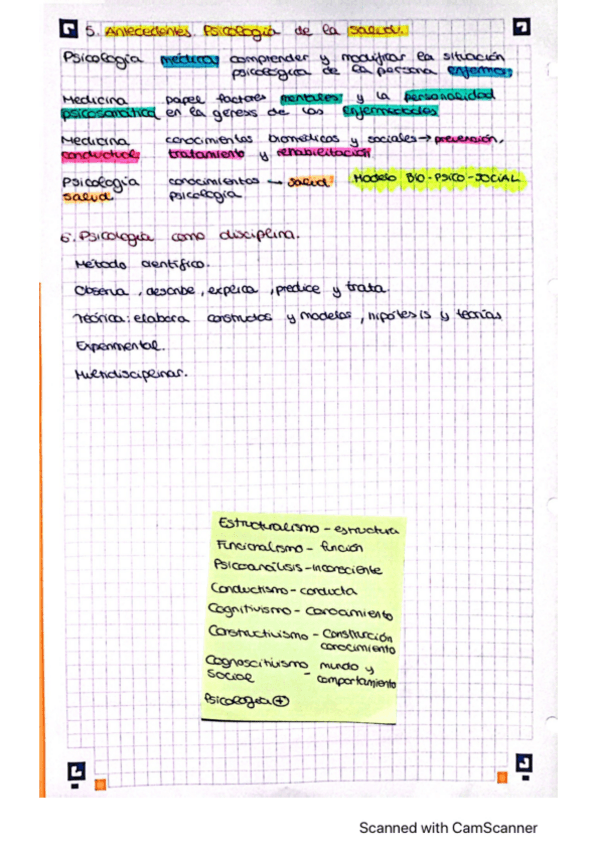 5. Antecedentes Psicología de la Salud.
Psicología médica comprender y modificar la situación
psicológica de la persona enferma.
Medicina papel factores mentales y la personalidad
psicosomática en la génesis de las enfermedades
Medicina conocimientos biomédicos y sociales → prevención,
conductual tratamiento y rehabilitación
Psicología conocimientos → salud MODELO BIO-PSICO-SOCIAL
salud psicología
6. Psicología como disciplina.
Método científico.
Observa, describe, explica, predice y trata.
Teórica: elabora constructos y modelos, hipótesis y teorías
Experimental.
Multidisciplinar.
Estructuralismo - estructura
Funcionalismo - función
Psicoanálisis - inconsciente
Conductismo - conducta
Cognitivismo - conocimiento
Constructivismo - Construcción
conocimiento
Cognoscitivismo mundo y
social - comportamiento
Psicología ⊕
Scanned with CamScanner